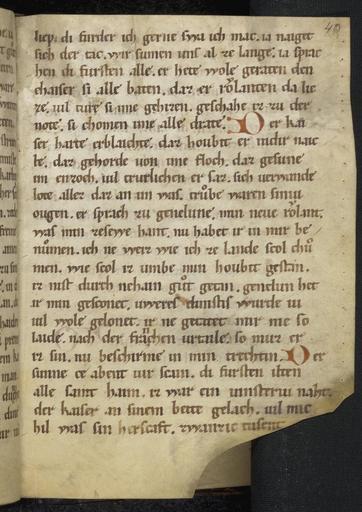 40
liep. di furder ich gerne swa ich mac. ia naiget
sich der tac. wir sumen uns al ze lange. ia sprac
hen di fursten alle. er hete wole geraten den
chaiser si alle baten. daz er rolanten da lie
ze. vil ture si ime gehiezen. geschahe iz zu der
note. si chomen ime alle drate. Der kai
ser harte erblaichte. daz houbit er nidir naic
te. daz gehorde von ime floch. daz gesune
im enzoch. vil trurlichen er saz. sich verwande
lote aller daz an im was. trůbe waren siniu
ougen. er sprach zu genelune. min neue rolant.
was min zesewe hant. nu habet ir in mir be
nůmen. ich ne weiz wie ich ze lande scol chů
men. wie scol iz umbe min houbit gestan.
ir nist durch nehain gůt getan. genelun het
ir min gesconet. unseres dienistis wurde iu
vil wole gelonet. ir ne getatet mir nie so
laide. nach der fraischen urtaile. so muz er
iz sin. nu beschirme in min trechtin. Der
sunne ze abent vur scain. di fursten ilten
alle samt haim. iz war ein vinsteriu naht.
der kaiser an sinem bette gelach. vil mic
hil was sin herscaft. zwainzic tusent